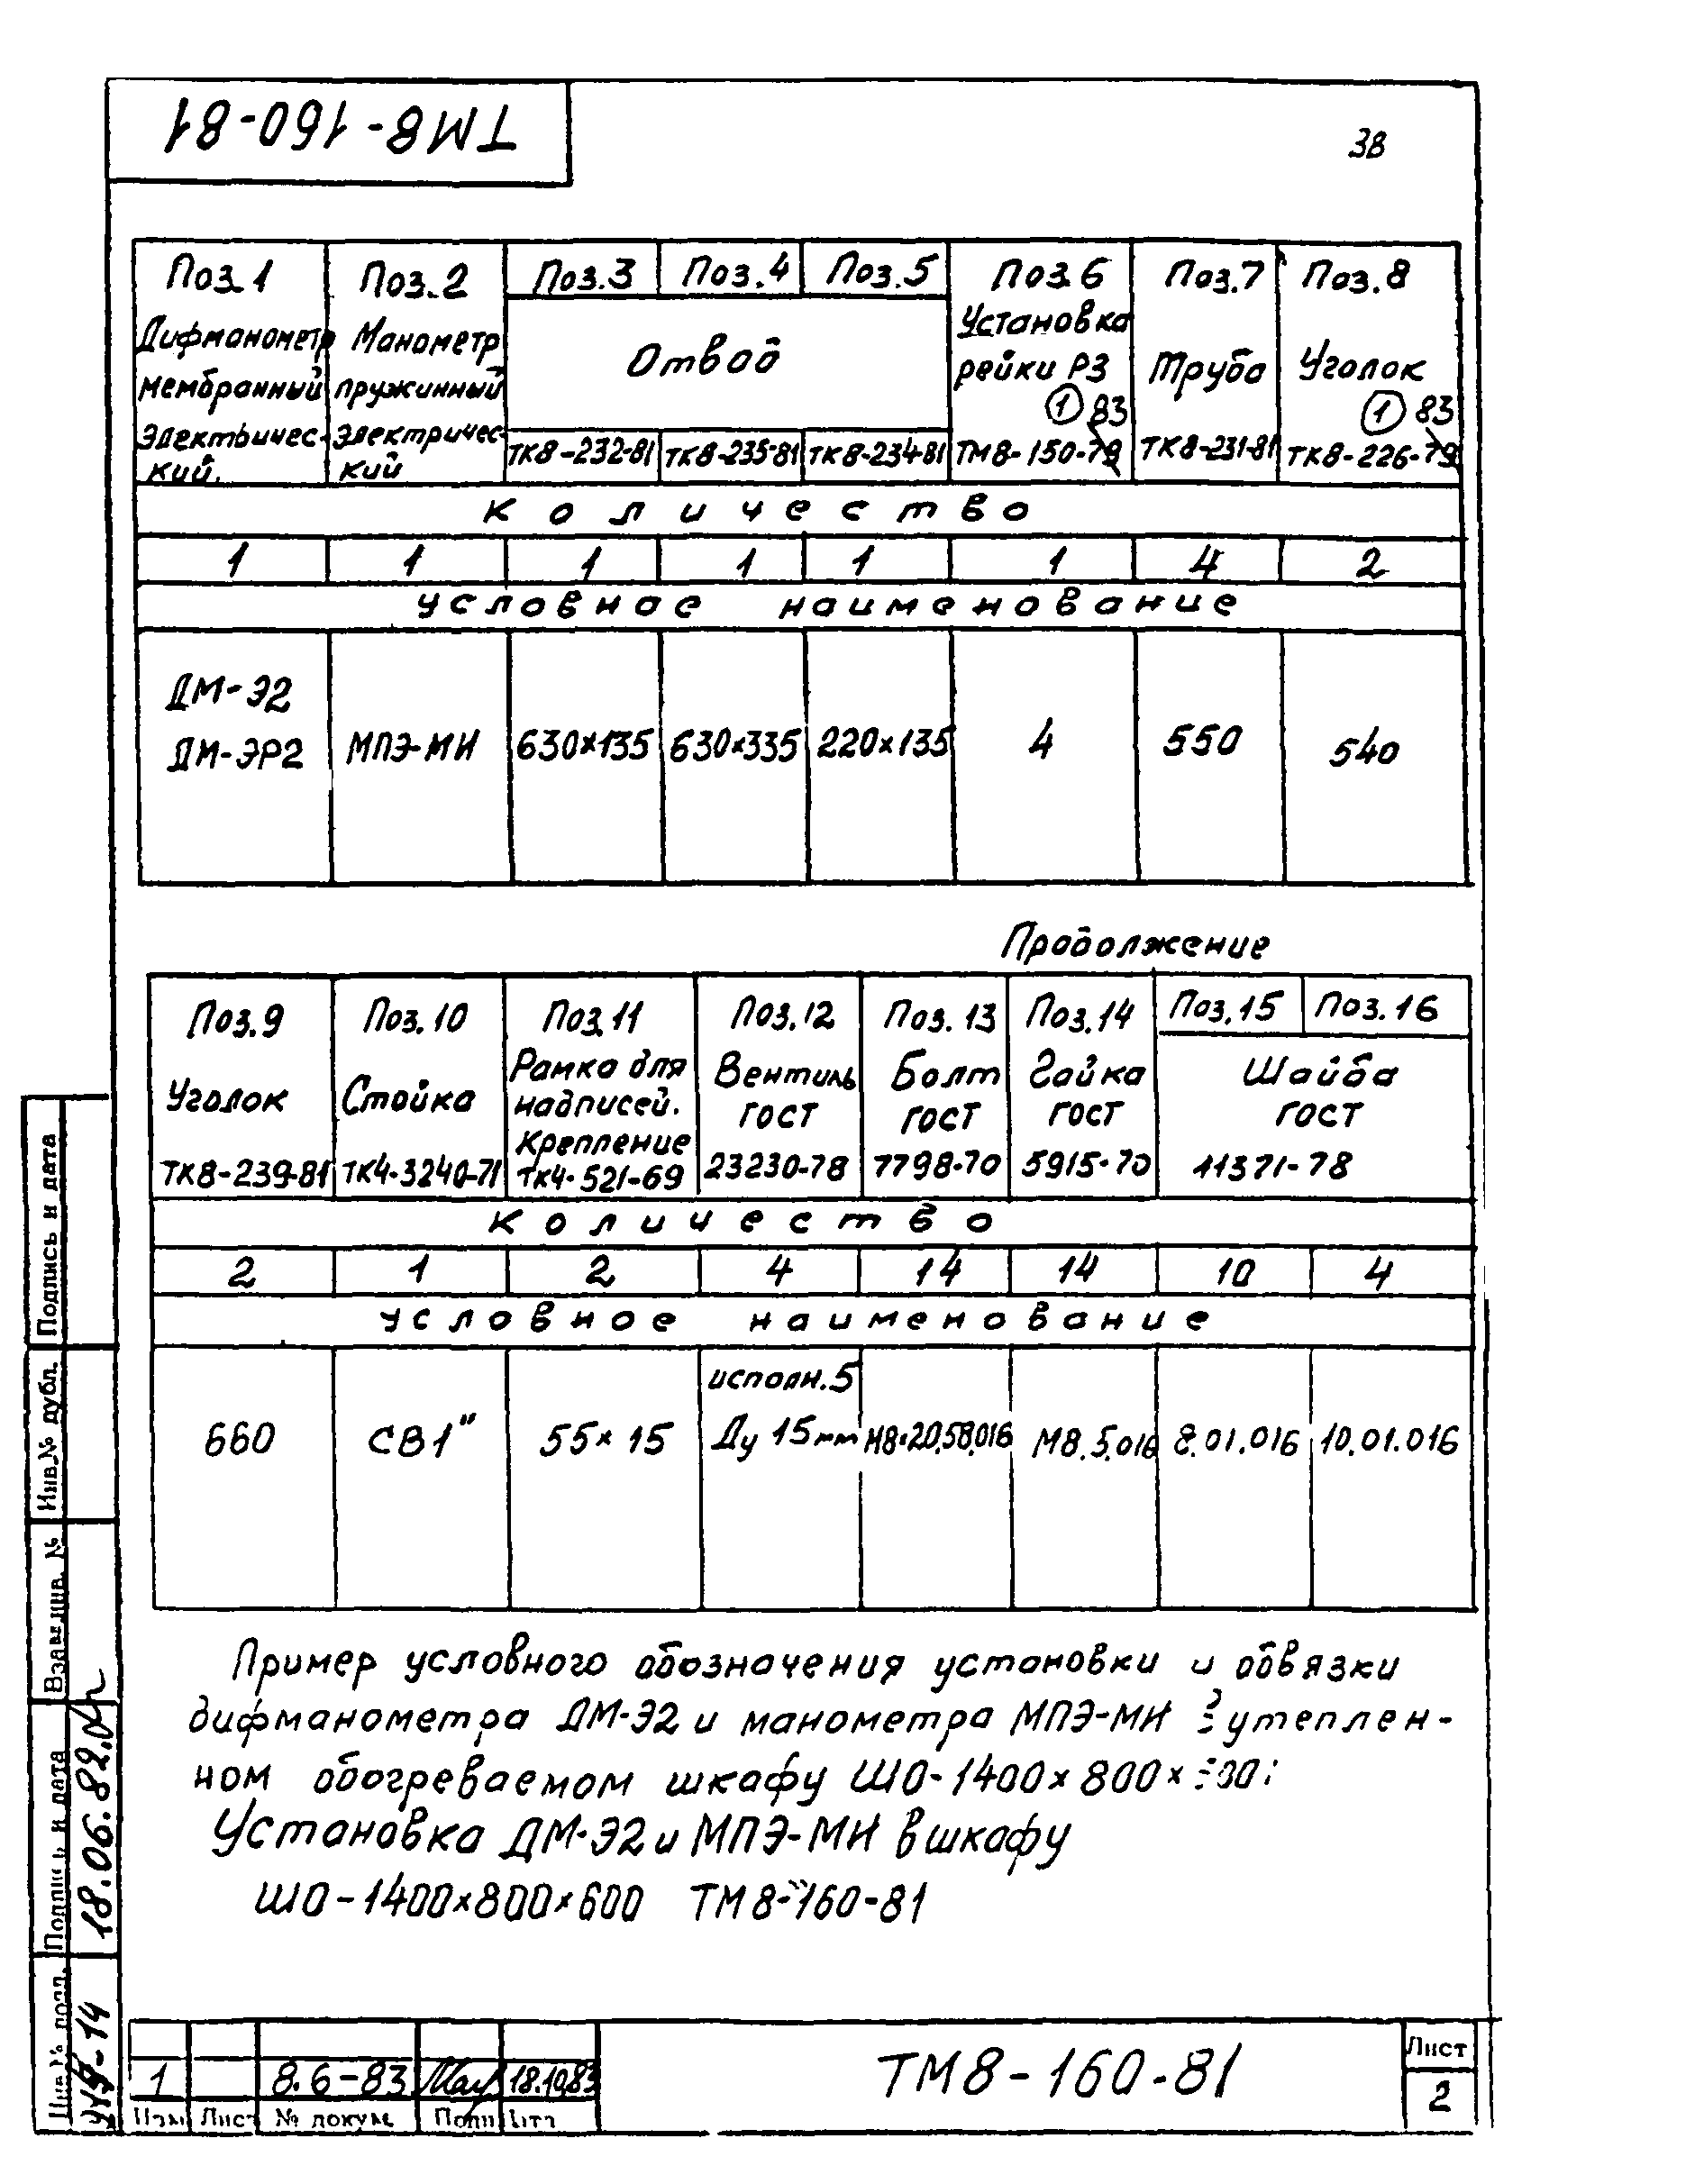 ТМ8-160-81
38
Поз.1 Поз.2 Поз.3 Поз.4 Поз.5 Поз.6 Поз.7 Поз.8
Дифманометр мембранный электричес-кий.
Манометр пружинный электричес-кий
Отвод
ТК8-232-81 ТК8-235-81 ТК8-234-81
Установка рейки РЗ
① 83
ТМ8-150-79
Труба
ТК8-231-81
Уголок
① 83
ТК8-226-79
Количество
1 1 1 1 1 1 4 2
Условное наименование
ДМ-Э2
ДМ-ЭР2 МПЭ-МИ 630×135 630×335 220×135 4 550 540
Продолжение
Поз.9 Поз.10 Поз.11 Поз.12 Поз.13 Поз.14 Поз.15 Поз.16
Уголок
ТК8-239-81
Стойка
ТК4-3240-71
Рамка для надписей.
Крепление
ТК4-521-69
Вентиль
ГОСТ
23230-78
Болт
ГОСТ
7798-70
Гайка
ГОСТ
5915-70
Шайба
ГОСТ
11371-78
Количество
2 1 2 4 14 14 10 4
Условное наименование
исполн.5
660 СВ1" 55×15 Ду 15мм М8×20.58.016 М8.5.016 8.01.016 10.01.016
Пример условного обозначения установки и обвязки
дифманометра ДМ-Э2 и манометра МПЭ-МИ утеплен-
ном обогреваемом шкафу ШО-1400×800×
Установка ДМ-Э2 и МПЭ-МИ в шкафу
ШО-1400×800×600 ТМ8-160-81
Подпись и дата
Инв.№ дубл.
Взам.инв. №
Подпись и дата
18.06.82
Инв.№ подл.
1 8.6-83 18.10.83
Изм Лист № докум. Подп. Дата
ТМ8-160-81
Лист
2